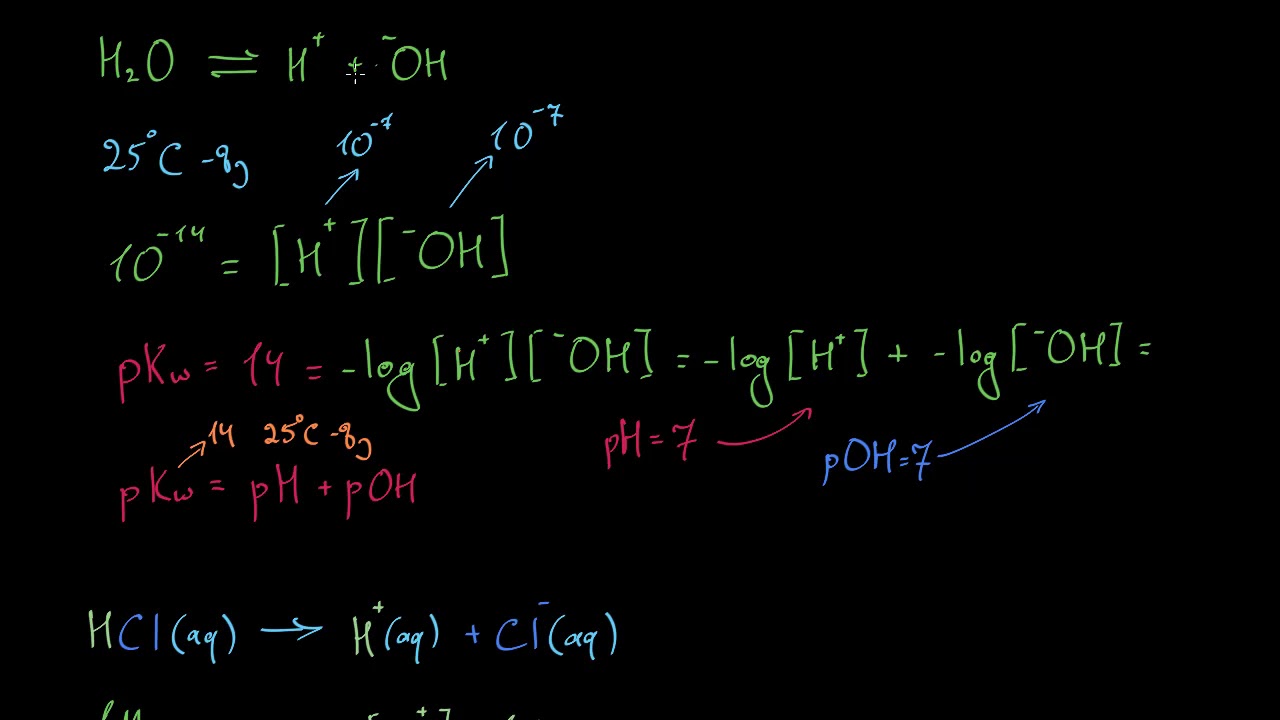 H₂O ⇌ H⁺ + ⁻OH
25°C-ში
10⁻⁷ 10⁻⁷
10⁻¹⁴ = [H⁺][⁻OH]
pKw = 14 = -log[H⁺][⁻OH] = -log[H⁺] + -log[⁻OH] =
14 25°C-ში
pH=7
pOH=7
pKw = pH + pOH
HCl(aq) → H⁺(aq) + Cl⁻(aq)